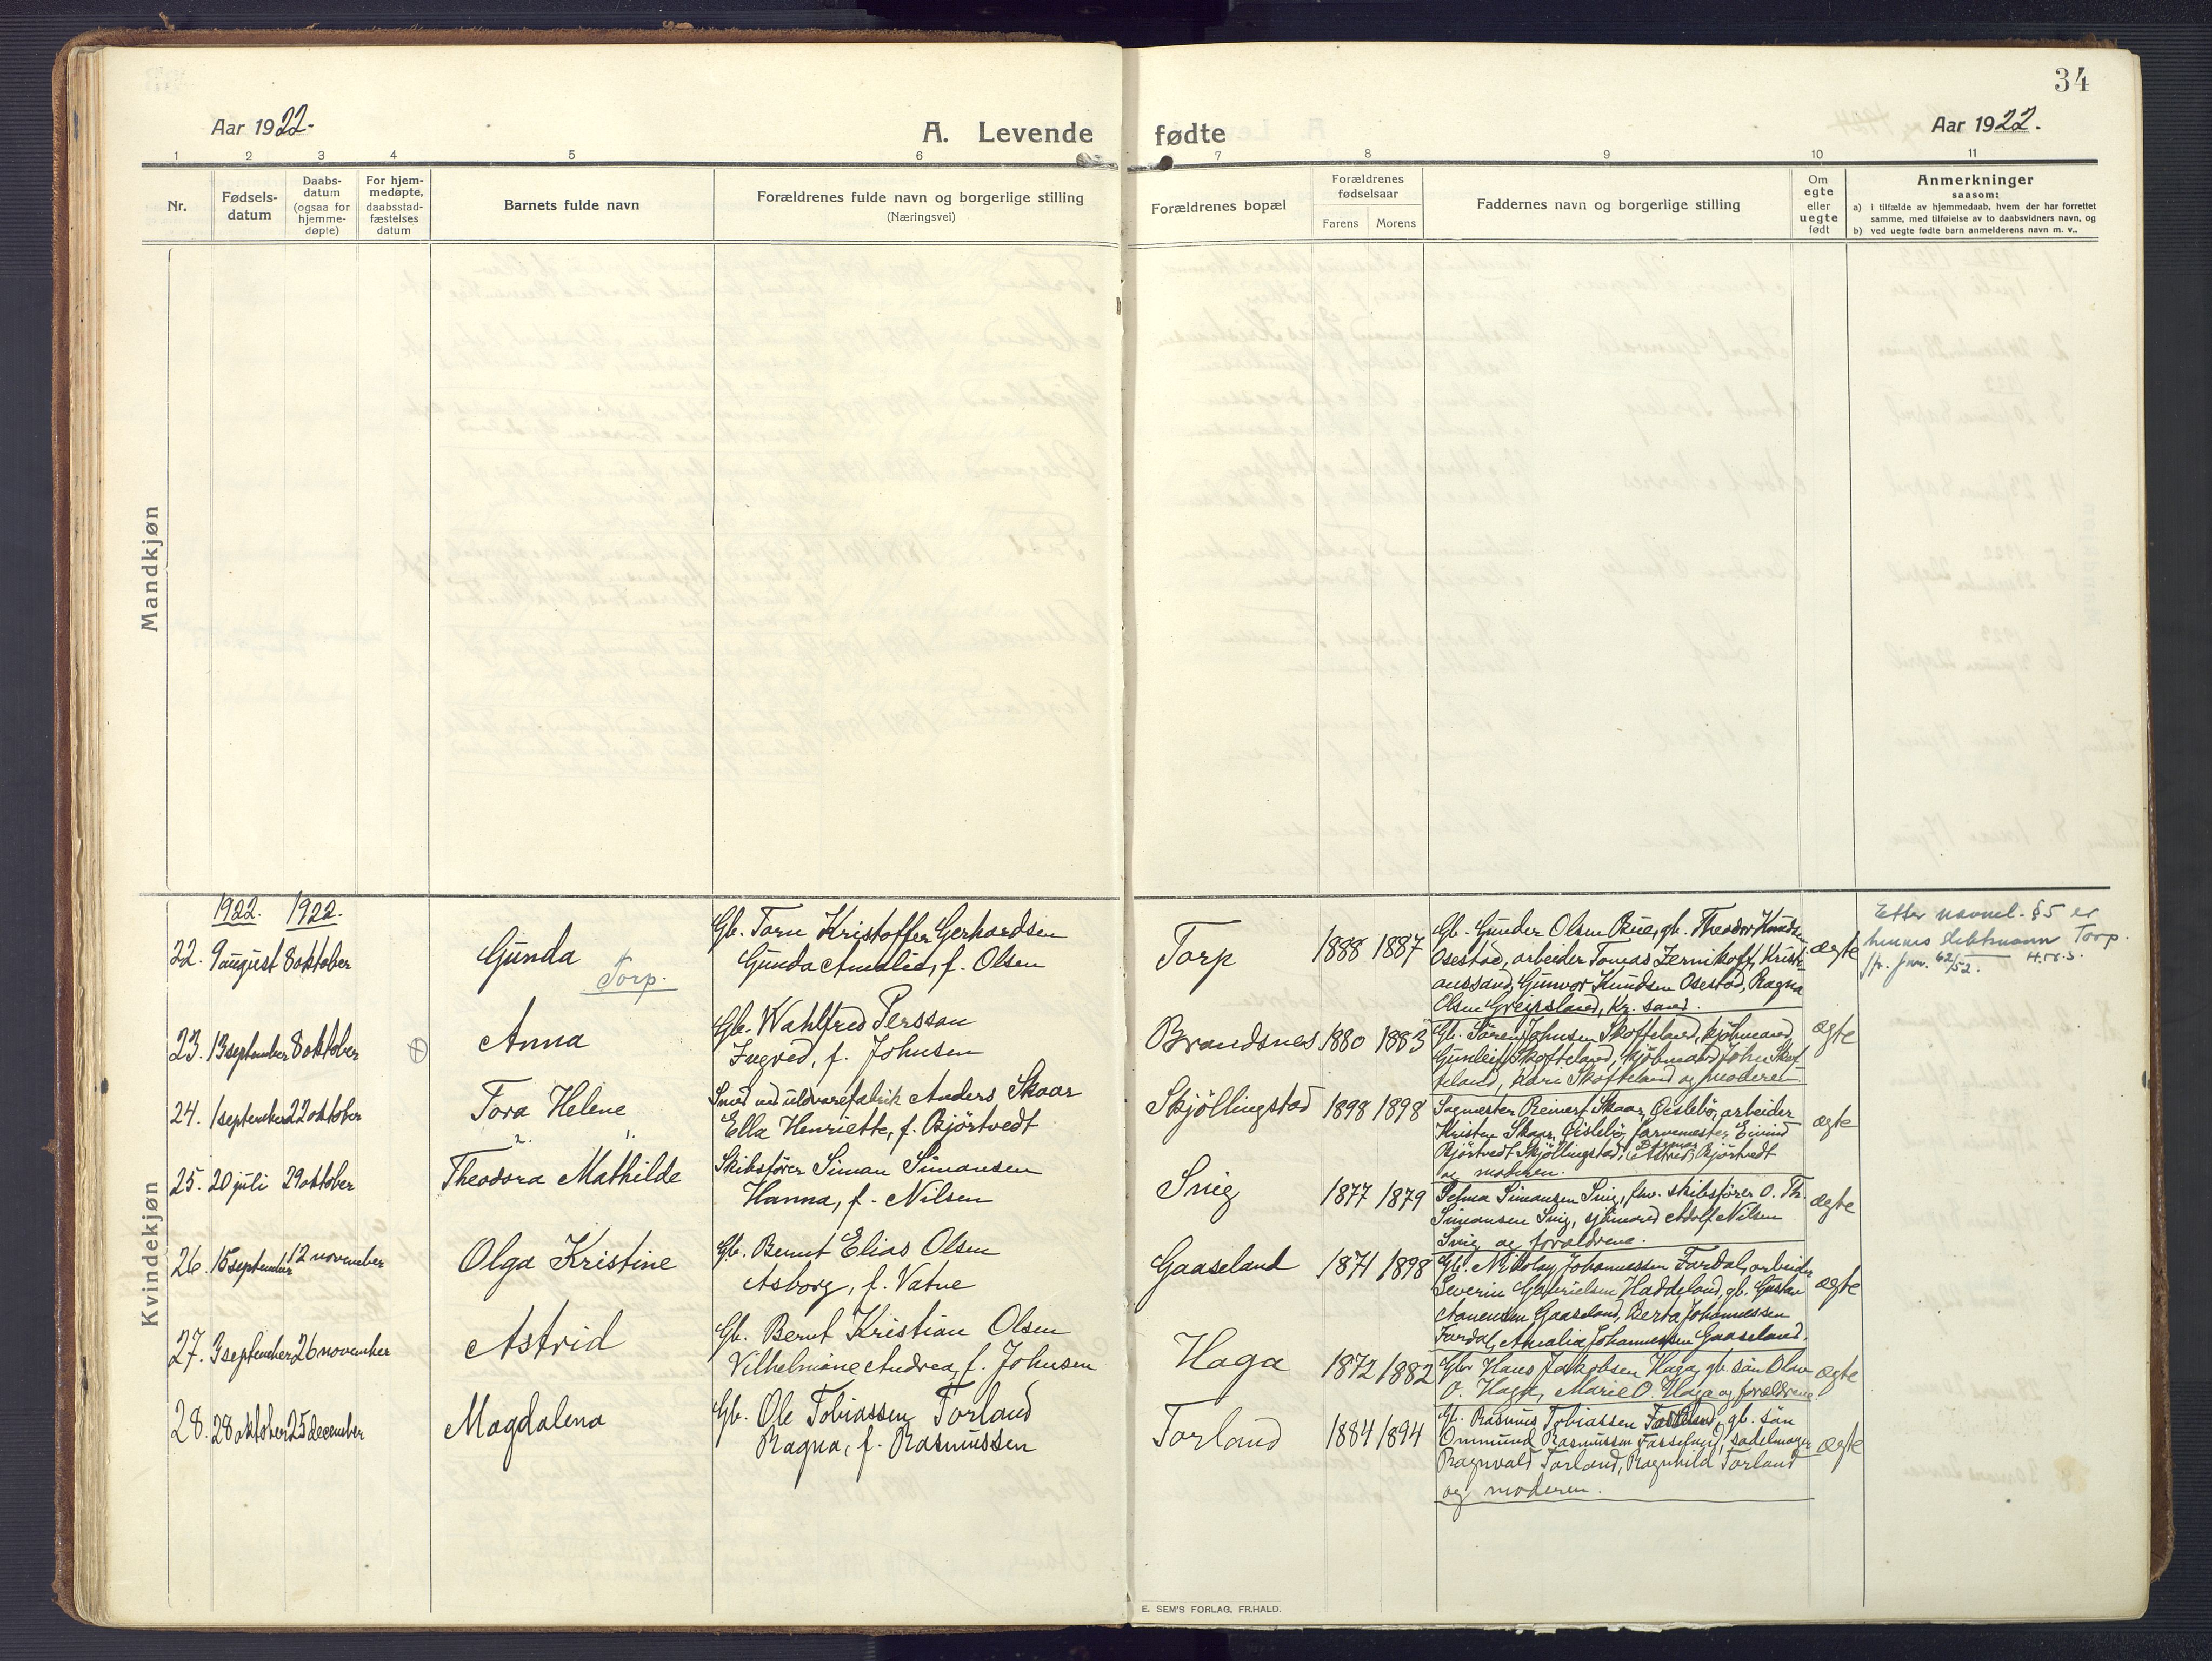 34
Aar 1922.
A. Levende fødte
Aar 1922.
1 2 3 4 5 6 7 8 9 10 11
Nr.
Fødsels-
datum
Daabs-
datum
(ogsaa for
hjemme-
døpte)
For hjem-
medøpte,
daabsstad-
fæstelses
datum
Barnets fulde navn
Forældrenes fulde navn og borgerlige stilling
(Næringsvei)
Forældrenes bopæl
Forældrenes
fødselsaar
Farens Morens
Faddernes navn og borgerlige stilling
Om
egte
eller
uegte
født
Anmerkninger
saasom:
a) i tilfælde av hjemmedaab, hvem der har forrettet
samme, med tilføielse av to daabsvidners navn, og
b) ved uegte fødte barn anmelderens navn m. v..
Mandkjøn
Kvindekjøn
1922. 1922.
22. 9 august 8 oktober
Gunda
Torp.
Gb. Tarn Kristoffer Gerhardsen
Gunda Amalia, f. Olsen
Torp
1888 1887
Gb. Gunder Olsen Bue, gb. Theodor Knudsen
Osestad, arbeider Tomas Jernikoff, Kristi-
anssand, Gunvor Knudsen Osestad, Ragna
Olsen Greipsland, Kr. sand.
ægte
Etter navnel. §5 er
hennes slektsnavn Torp.
jfr. jnr. 62/52.
23. 13 september 8 oktober
Anna
Gb. Wahlfred Persson
Ingved, f. Johnsen
Brandsnes
1880 1883
Gb. Søren Johnsen Skofteland, kjøbmand
Gunleif Skofteland, kjøbmand John Skof-
teland, Kari Skofteland og moderen
ægte
24. 1 september 22 oktober
Tora Helene
2. 1.
Smed ved uldvarefabrik Anders Skaar
Ella Henriette, f. Bjørtvedt
Skjøllingstad
1898 1898
Sagmester Reinert Skaar, Øislebø, arbeider
Kristen Skaar, Øislebø, farvemester Eivind
Bjørtvedt Skjøllingstad, Astrid Bjørtvedt
og moderen.
ægte
25. 20 juli 29 oktober
Theodora Mathilde
Skibsfører Simon Simonsen
Hanna, f. Nilsen
Snig
1877 1879
Selma Simonsen Snig, fhv. skibsfører O. Th.
Simonsen Snig, sjømand Adolf Nilsen
Snig og forældrene.
ægte
26. 15 september 12 november
Olga Kristine
Gb. Bernt Elias Olsen
Asborg, f. Vatne
Gaaseland
1871 1898
Gb. Nikolay Johannessen Fardal, arbeider
Severin Gabrielsen Haddeland, gb. Gustav
Aanensen Gaaseland, Berta Johannessen
Fardal, Amalia Johannessen Gaaseland.
ægte
27. 3 september 26 november
Astrid
Gb. Bernt Kristian Olsen
Vilhelmine Andrea, f. Johnsen
Haga
1872 1882
Gbr. Hans Jakobsen Haga, gb. søn Olav
O. Haga, Marie O. Haga og forældrene
ægte
28. 28 oktober 25 december
Magdalena
Gb. Ole Tobiassen Torland
Ragna, f. Rasmussen
Torland
1884 1894
Gb. Rasmus Tobiassen gb. søn
Ommund Rasmussen sadelmager
Ragnvald Torland, Ragnhild Torland
og moderen.
ægte
E. SEM'S FORLAG, FR.HALD.